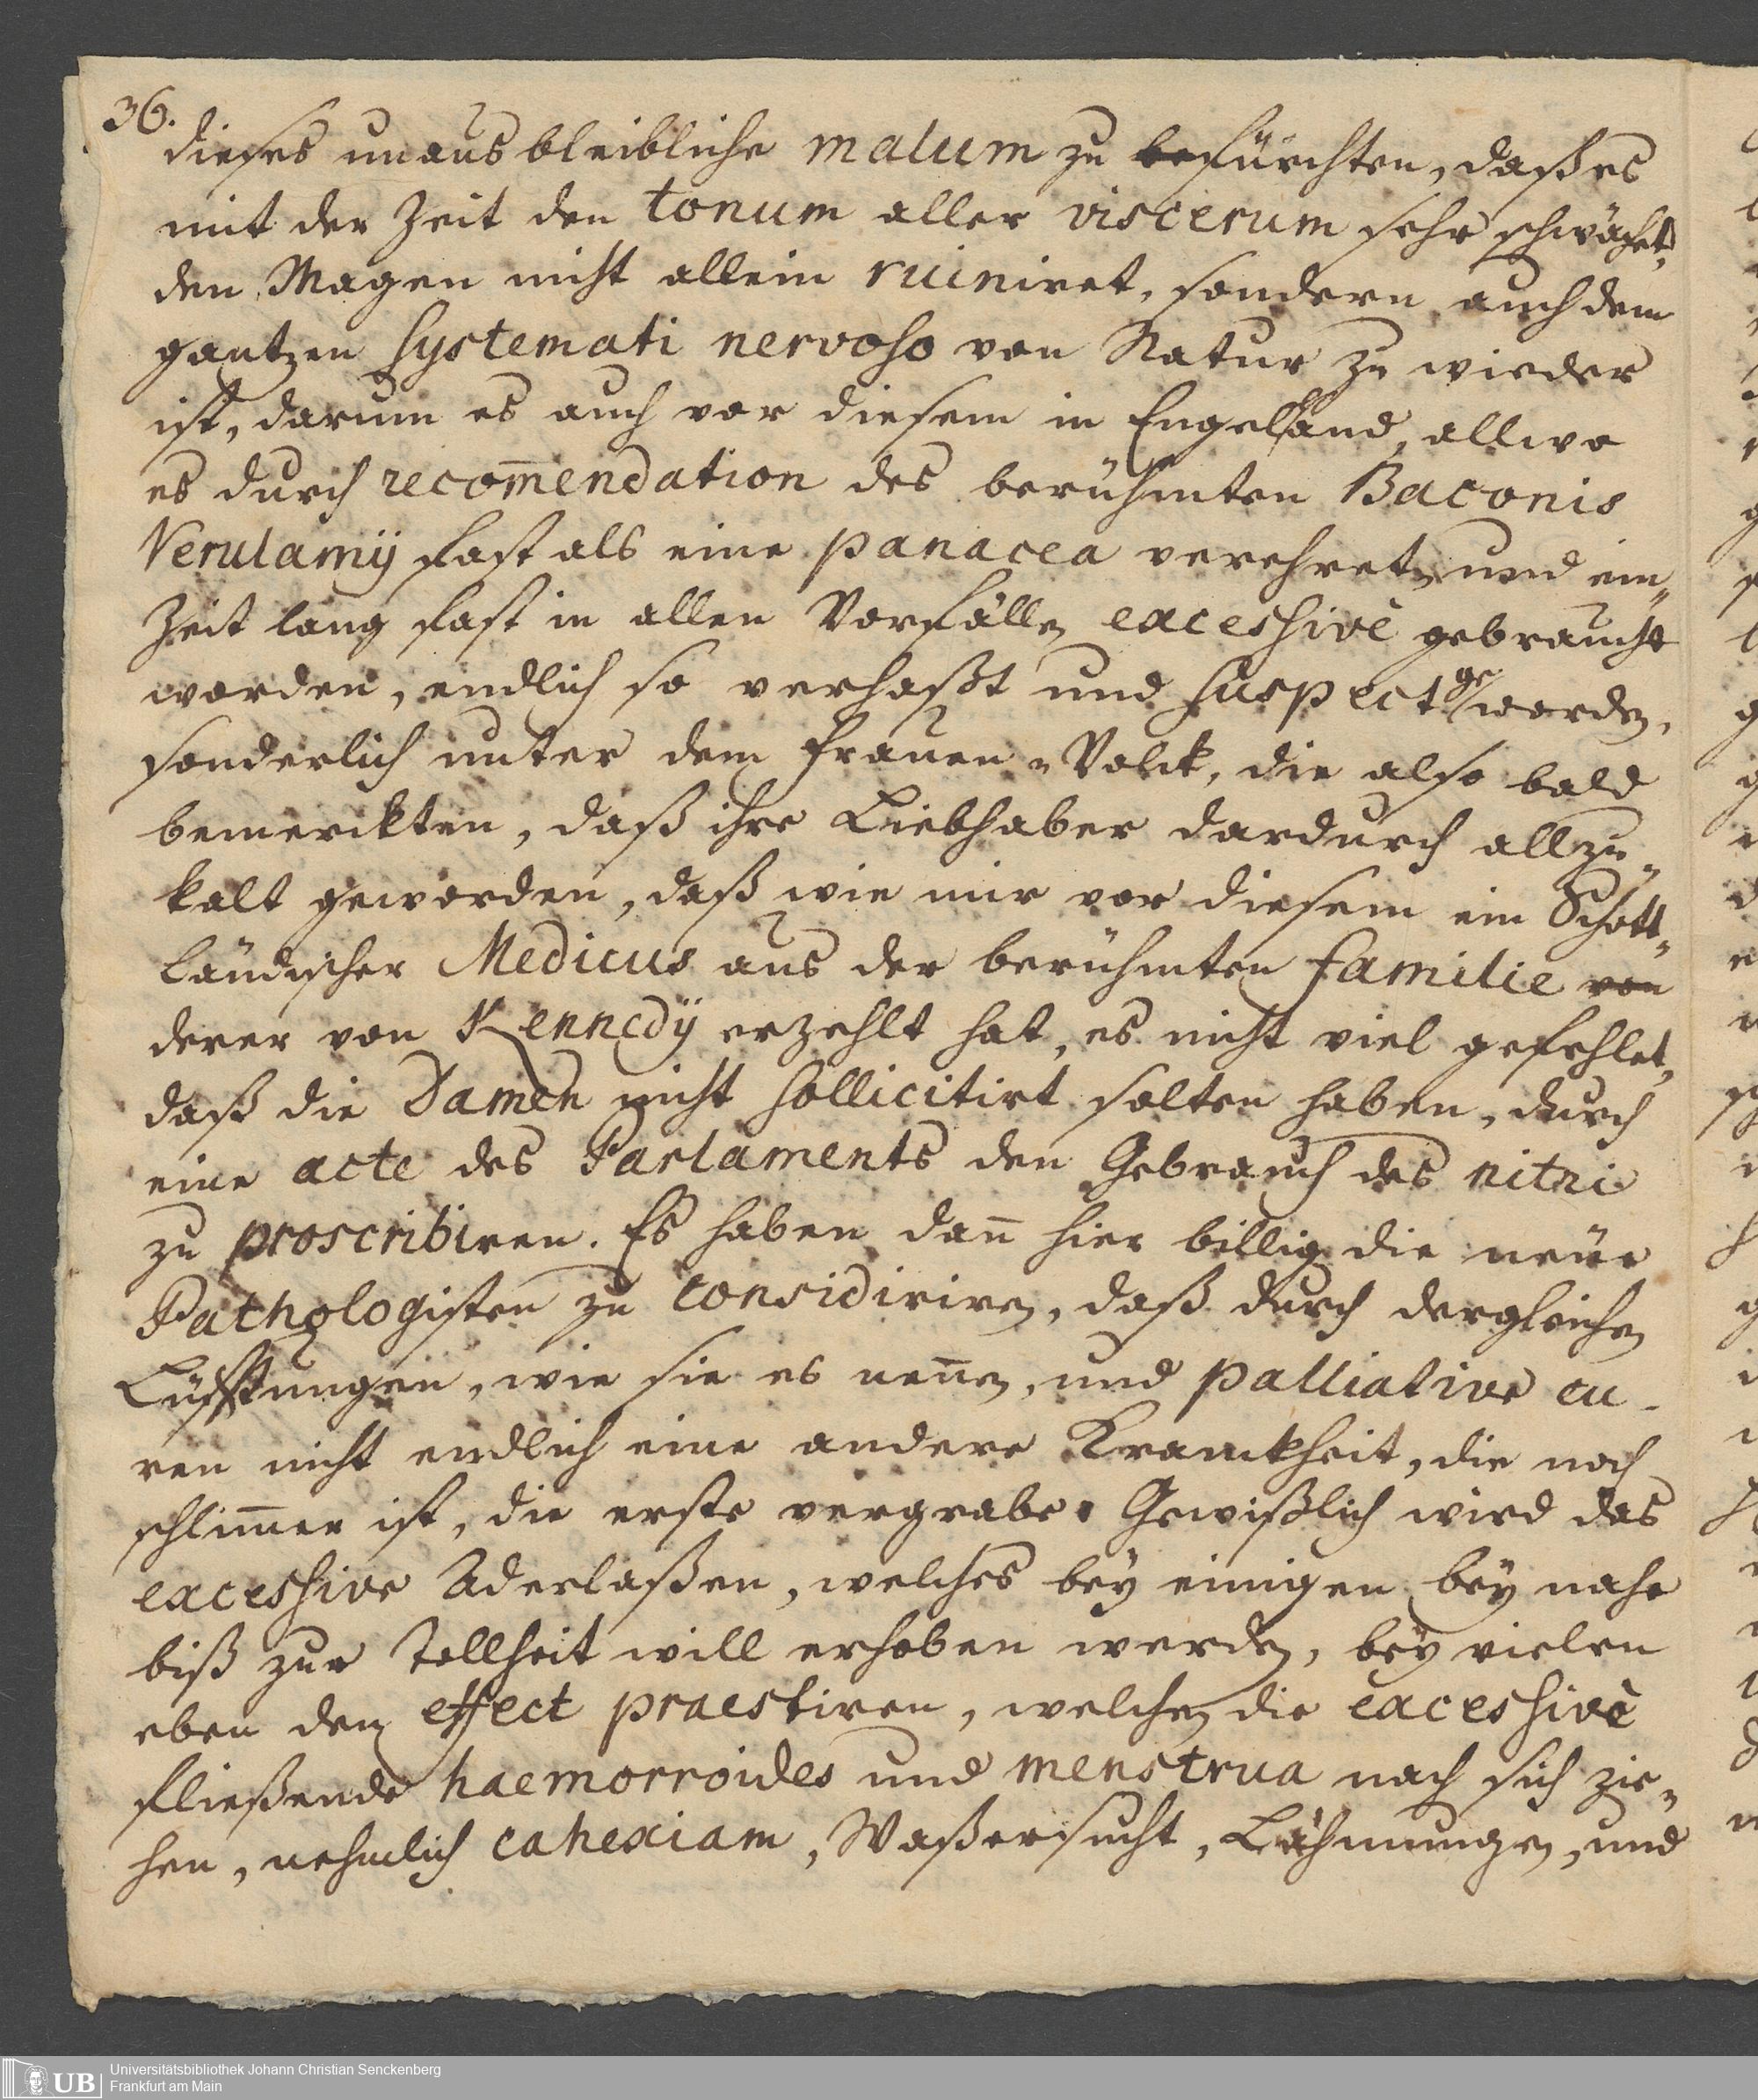 36.
dieses unausbleibliche malum zu befürchten, daß es
mit der Zeit den tonum aller viscerum sehr schwächet,
den Magen nicht allein ruiniret, sondern auch dem
gantzen systemati nervoso von Natur zu wieder
ist, darum es auch vor diesem in Engelland, allwo
es durch recom̄endation des berühmten Baconis
Verulamij fast als eine panacea verehret, und ein„
Zeit lang fast in allen Vorfällen excessivè gebraucht
worden, endlich so verhaßt und suspect geworden,
sonderlich unter dem Frauen-Volck, die also bald
bemerckten, daß ihre Liebhaber dardurch allzu„
kalt geworden, daß wie mir vor diesem ein Schott„
ländischer Medicus aus der berühmten familie von
derer von Kennedÿ erzehlt hat, es nicht viel gefehlet,
daß die Damen nicht sollicitirt solten haben, durch
eine acte des Parlaments den Gebrauch des nitri
zu proscribiren. Es haben dan̄ hier billig die neüe
Pathologisten zu considiriren, daß durch dergleichen
Lüfftungen, wie sie es nen̄en, und palliative cu-
ren nicht endlich eine andere Kranckheit, die noch
schlim̄er ist, die erste vergrabe. Gewißlich wird das
excessive Aderlaßen, welches beÿ einigen beÿ nahe
biß zur Tollheit will erhoben werden, beÿ vielen
eben den effect praestiren, welchen die excessivè
fließende haemorroides und menstrua nach sich zie„
hen, nehmlich cahexiam, Waßersucht, Lähmungen, und
UB
Universitätsbibliothek Johann Christian Senckenberg
Frankfurt am Main